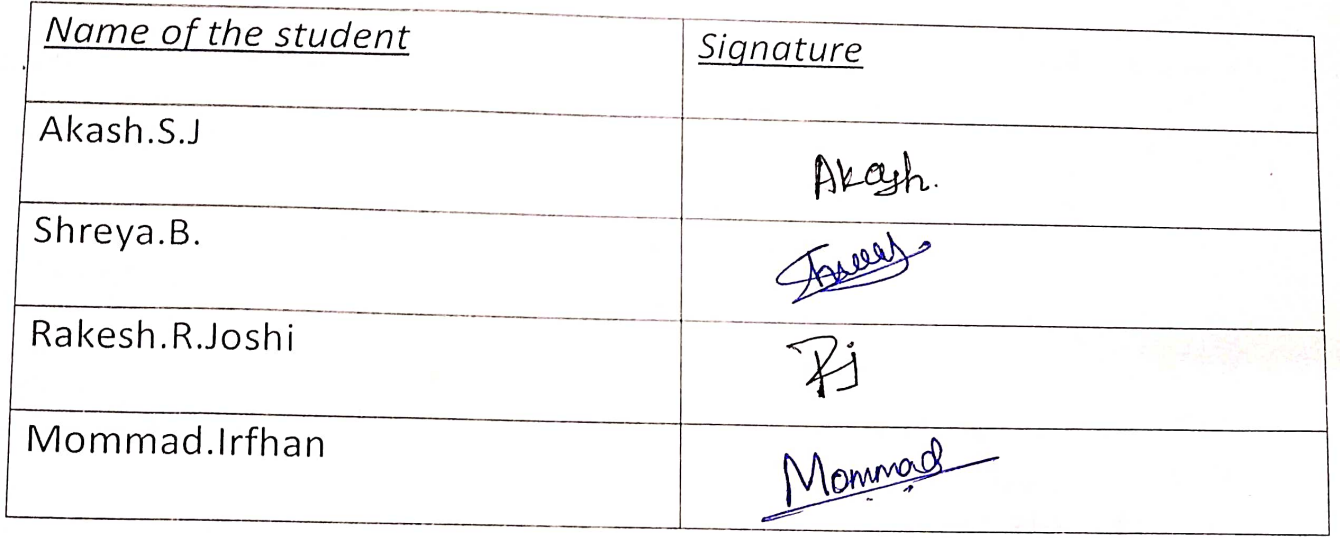 Name of the student Signature
Akash.S.J
Akash.
Shreya.B.
Rakesh.R.Joshi
Rj
Mommad.Irfhan
Mommad